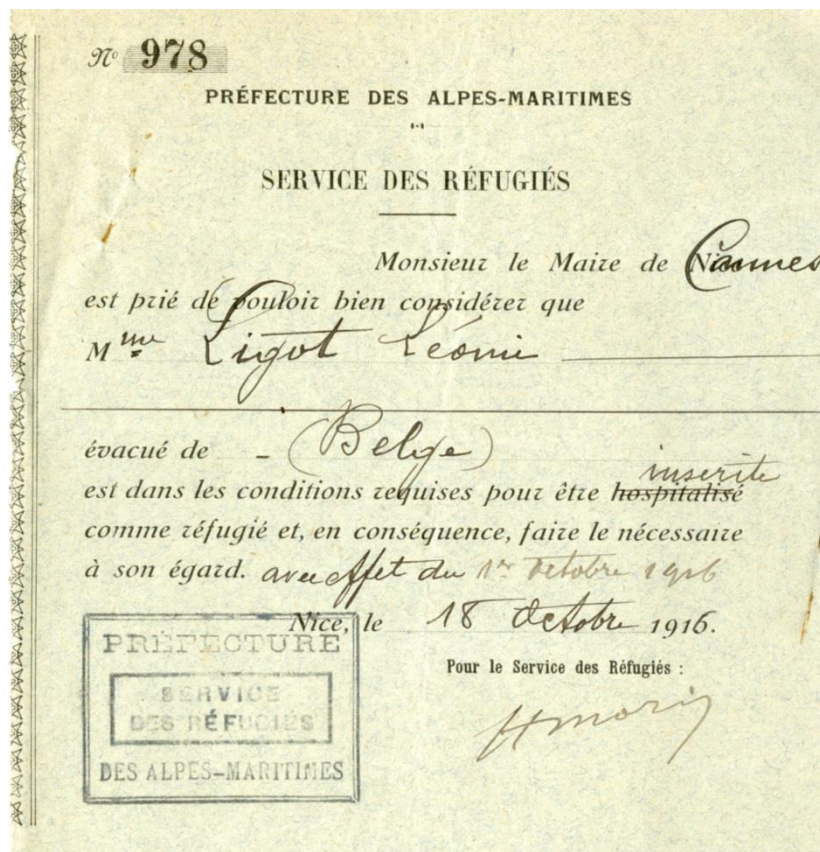 N° 978
PRÉFECTURE DES ALPES-MARITIMES
SERVICE DES RÉFUGIÉS
Monsieur le Maire de Cannes
est prié de vouloir bien considérer que
Mme Ligot Léonie
évacué de - (Belge)
inscrite
est dans les conditions requises pour être hospitalisé
comme réfugié et, en conséquence, faire le nécessaire
à son égard. avec effet du 1er Octobre 1916
Nice, le 18 Octobre 1916.
Pour le Service des Réfugiés :
PRÉFECTURE
SERVICE
DES RÉFUGIÉS
DES ALPES-MARITIMES